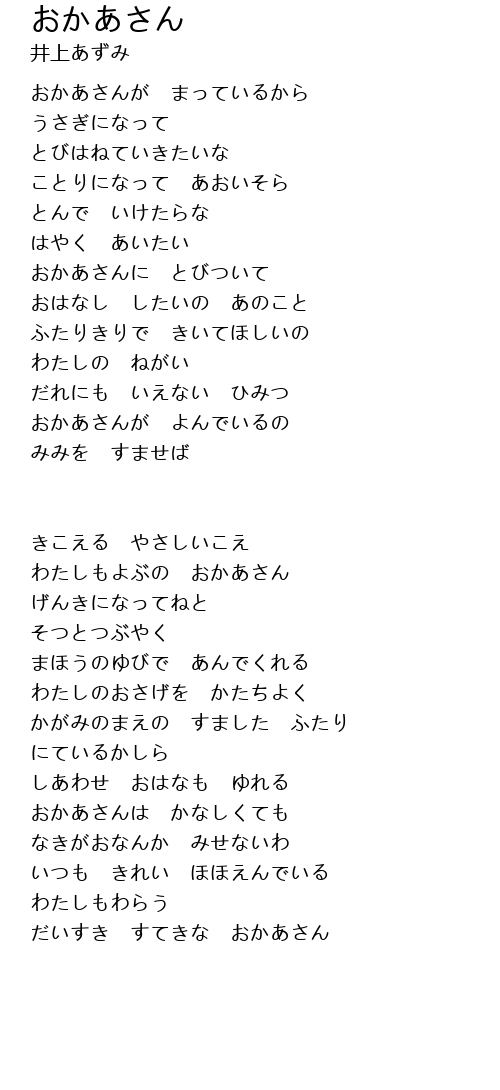 おかあさん
井上あずみ
おかあさんが　まっているから
うさぎになって
とびはねていきたいな
ことりになって　あおいそら
とんで　いけたらな
はやく　あいたい
おかあさんに　とびついて
おはなし　したいの　あのこと
ふたりきりで　きいてほしいの
わたしの　ねがい
だれにも　いえない　ひみつ
おかあさんが　よんでいるの
みみを　すませば
きこえる　やさしいこえ
わたしもよぶの　おかあさん
げんきになってねと
そつとつぶやく
まほうのゆびで　あんでくれる
わたしのおさげを　かたちよく
かがみのまえの　すました　ふたり
にているかしら
しあわせ　おはなも　ゆれる
おかあさんは　かなしくても
なきがおなんか　みせないわ
いつも　きれい　ほほえんでいる
わたしもわらう
だいすき　すてきな　おかあさん